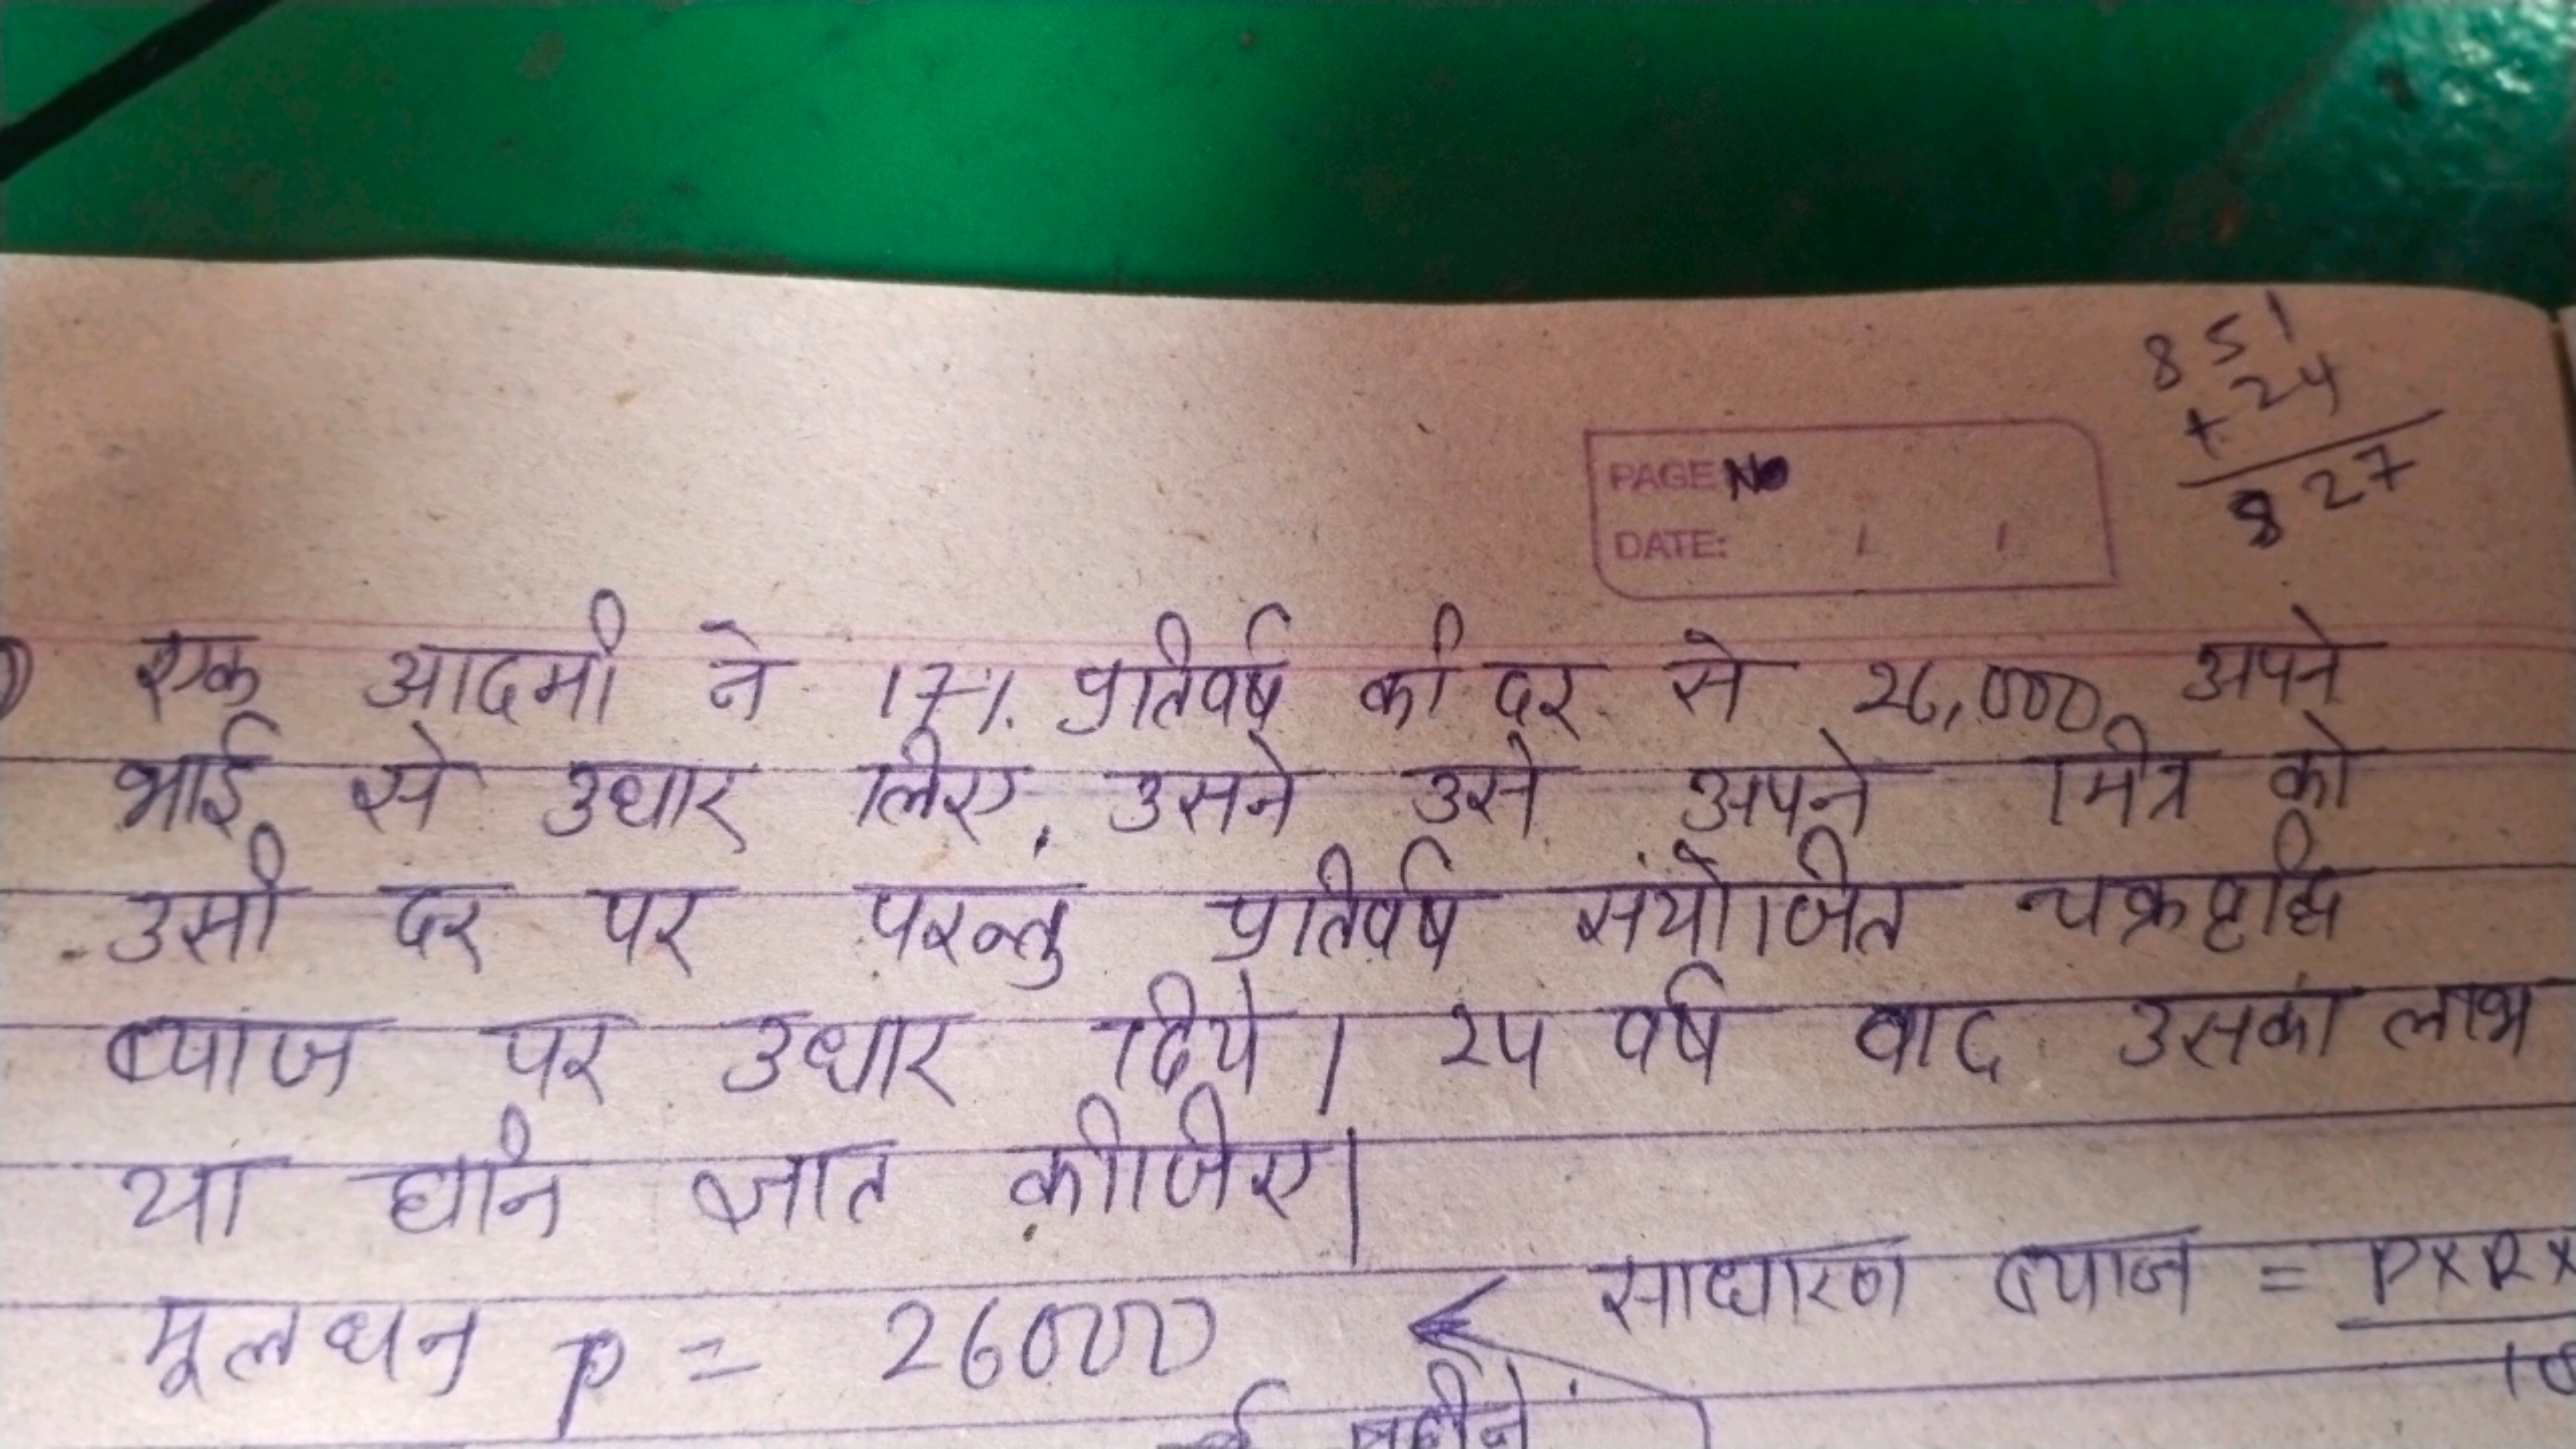 851
+ 24
827
PAGE No
DATE: / /
एक आदमी ने 17%. प्रतिवर्ष की दर से 26,000 अपने
भाई से उधार लिए, उसने उसे अपने मित्र को
उसी दर पर परन्तु प्रतिवर्ष संयोजित चक्रवृद्धि
ब्याज पर उधार दिये। 24 वर्ष बाद उसका लाभ
या हानि ज्ञात कीजिए।
मूलधन p = 26000 साधारण ब्याज = P×R×